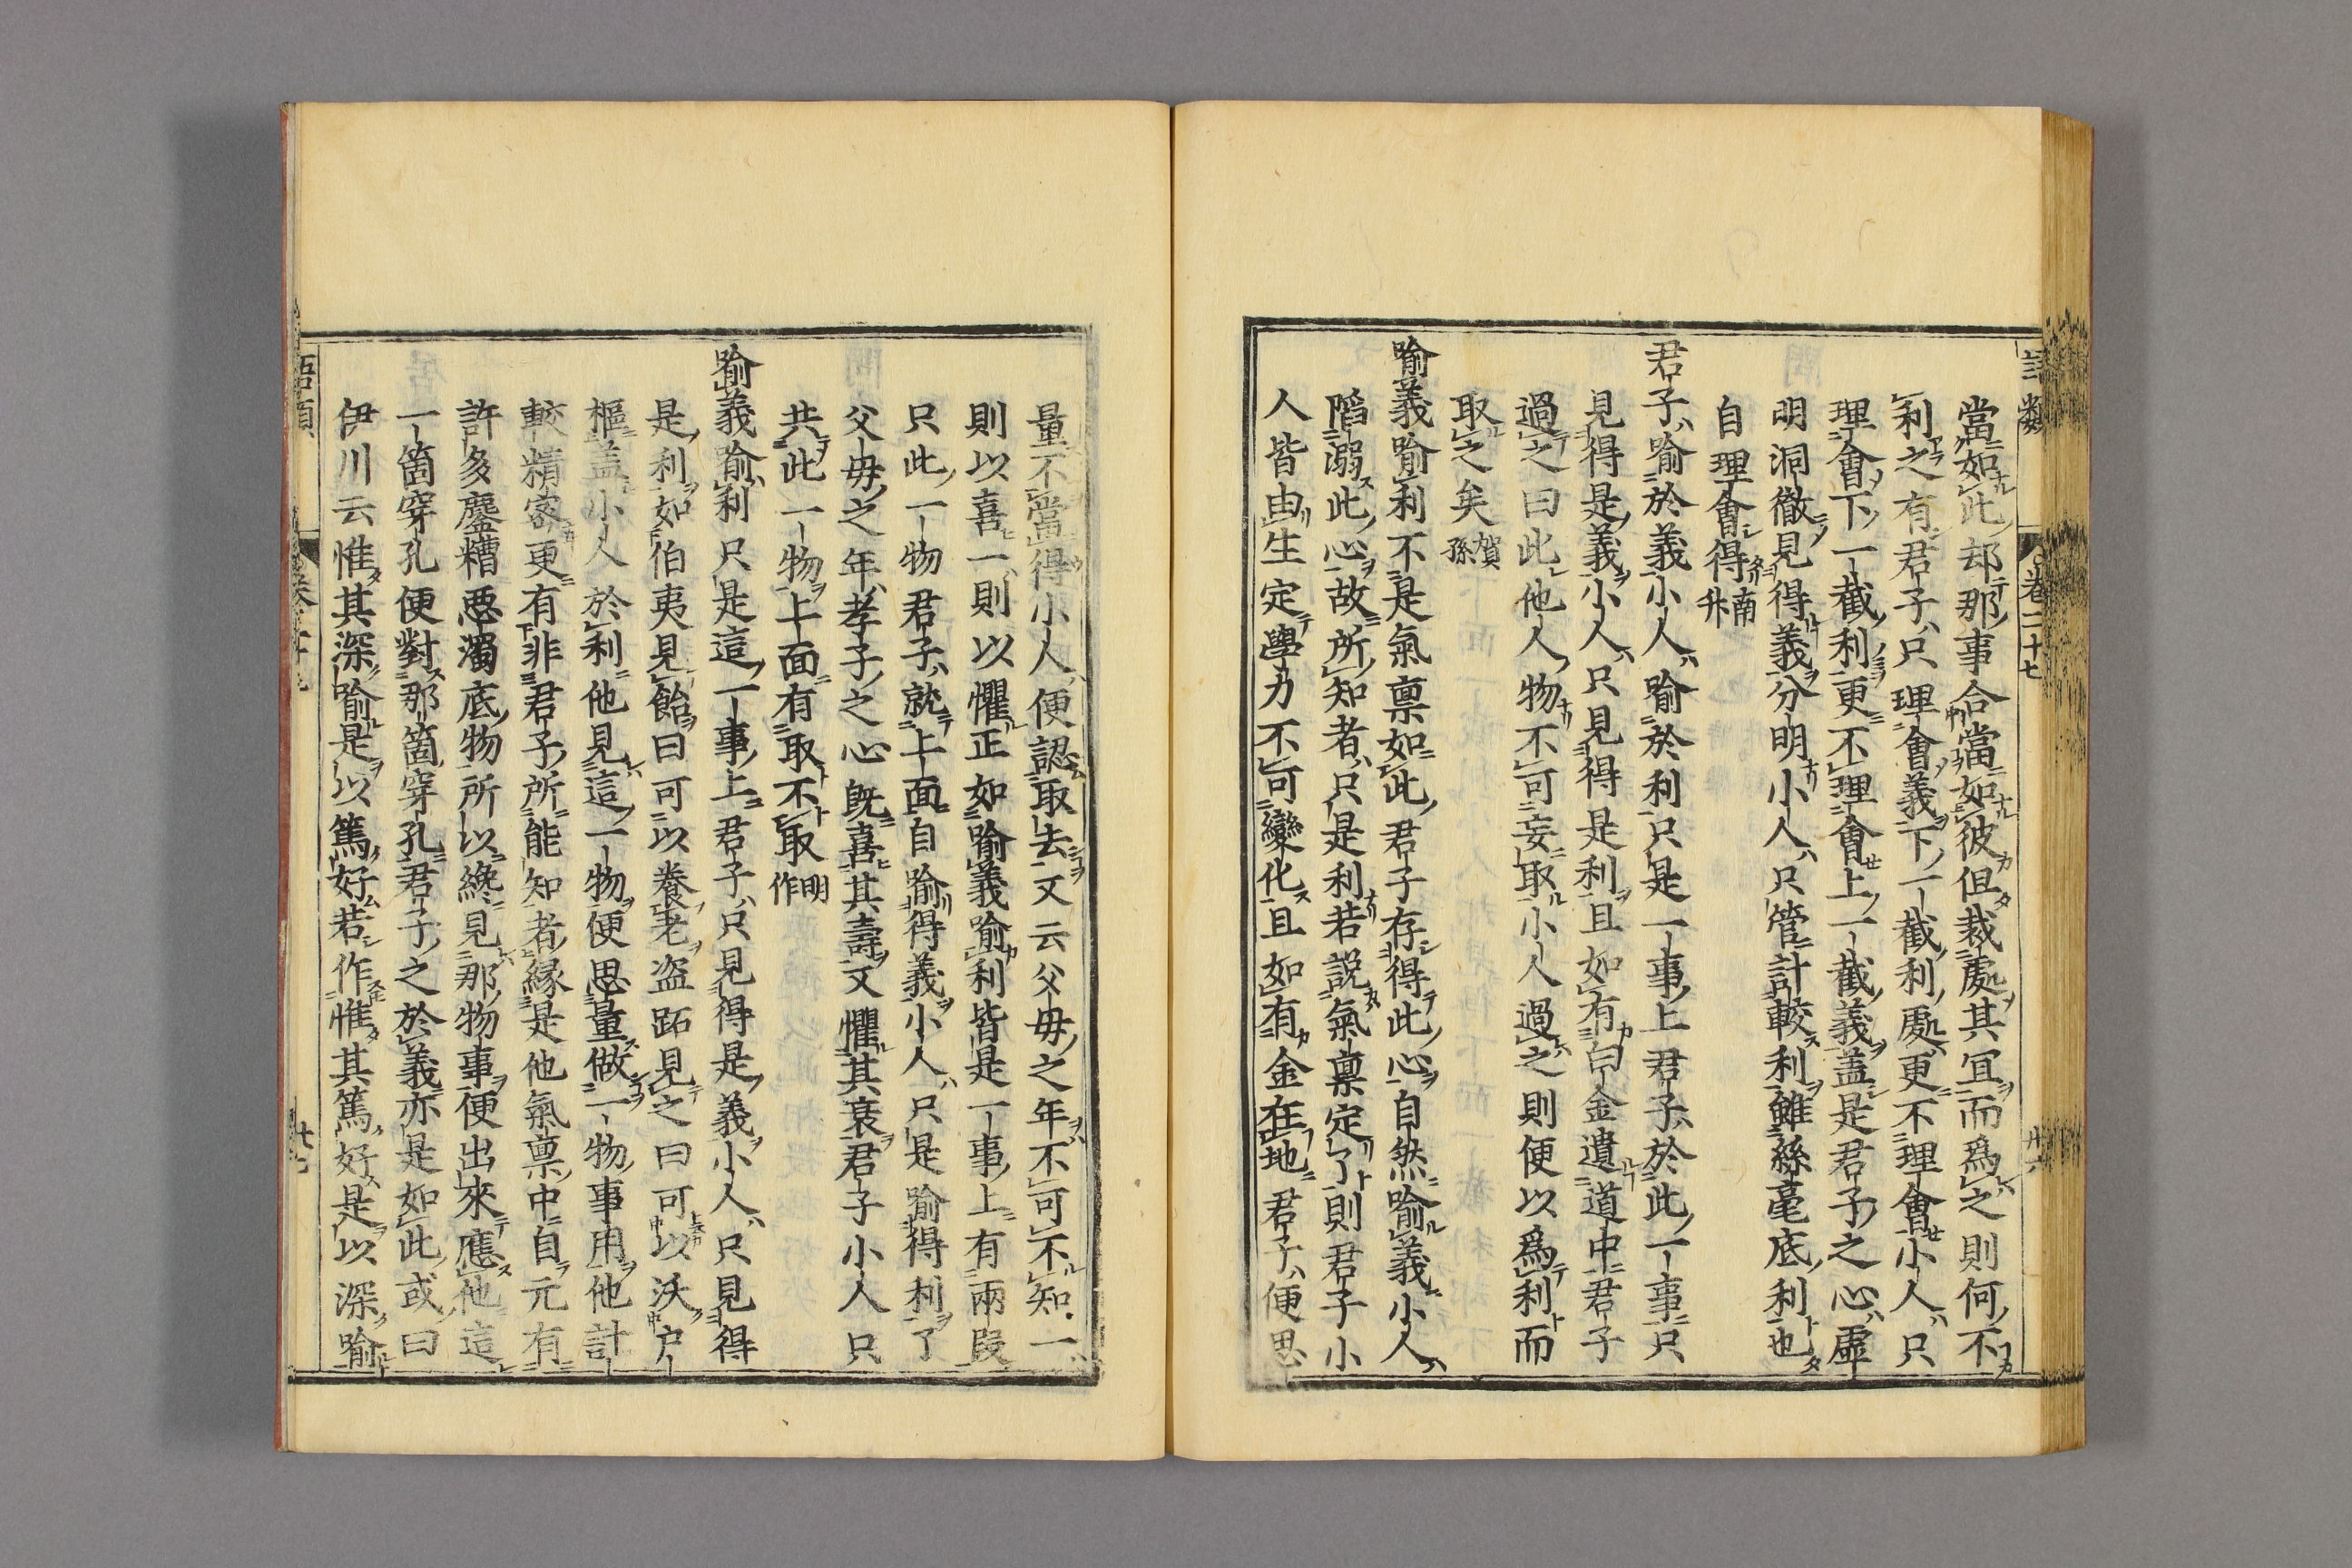 當如此却那事合當如彼但裁處其宜而爲之則何不
利之有君子只理會義下一截利處更不理會小人只
理會下一截利更不理會上一截義蓋是君子之心虛
明洞徹見得義分明小人只管計較利雖絲毫底利也
自理會得南升
君子喻於義小人喻於利只是一事上君子於此一事只
見得是義小人只見得是利且如有白金遺道中君子
過之曰此他人物不可妄取小人過之則便以爲利而
取之矣賀孫
喻義喻利不是氣稟如此君子存得此心自然喻義小人
陷溺此心故所知者只是利若說氣稟定了則君子小
人皆由生定學力不可變化且如有金在地君子便思
量不當得小人便認取去又云父母之年不可不知一
則以喜一則以懼正如喻義喻利皆是一事上有兩段
只此一物君子就上面自喻得義小人只是喻得利了
父母之年孝子之心旣喜其壽又懼其衰君子小人只
共此一物上面有取不取明作
喻義喻利只是這一事上君子只見得是義小人只見得
是利如伯夷見飴曰可以養老盗跖見之曰可以沃户
樞蓋小人於利他見這一物便思量做一物事用他計
較精密更有非君子所能知者緣是他氣稟中自元有
許多鏖糟惡濁底物所以纔見那物事便出來應他這
一箇穿孔便對那箇穿孔君子之於義亦是如此或曰
伊川云惟其深喻是以篤好若作惟其篤好是以深喻
語類
卷二十七